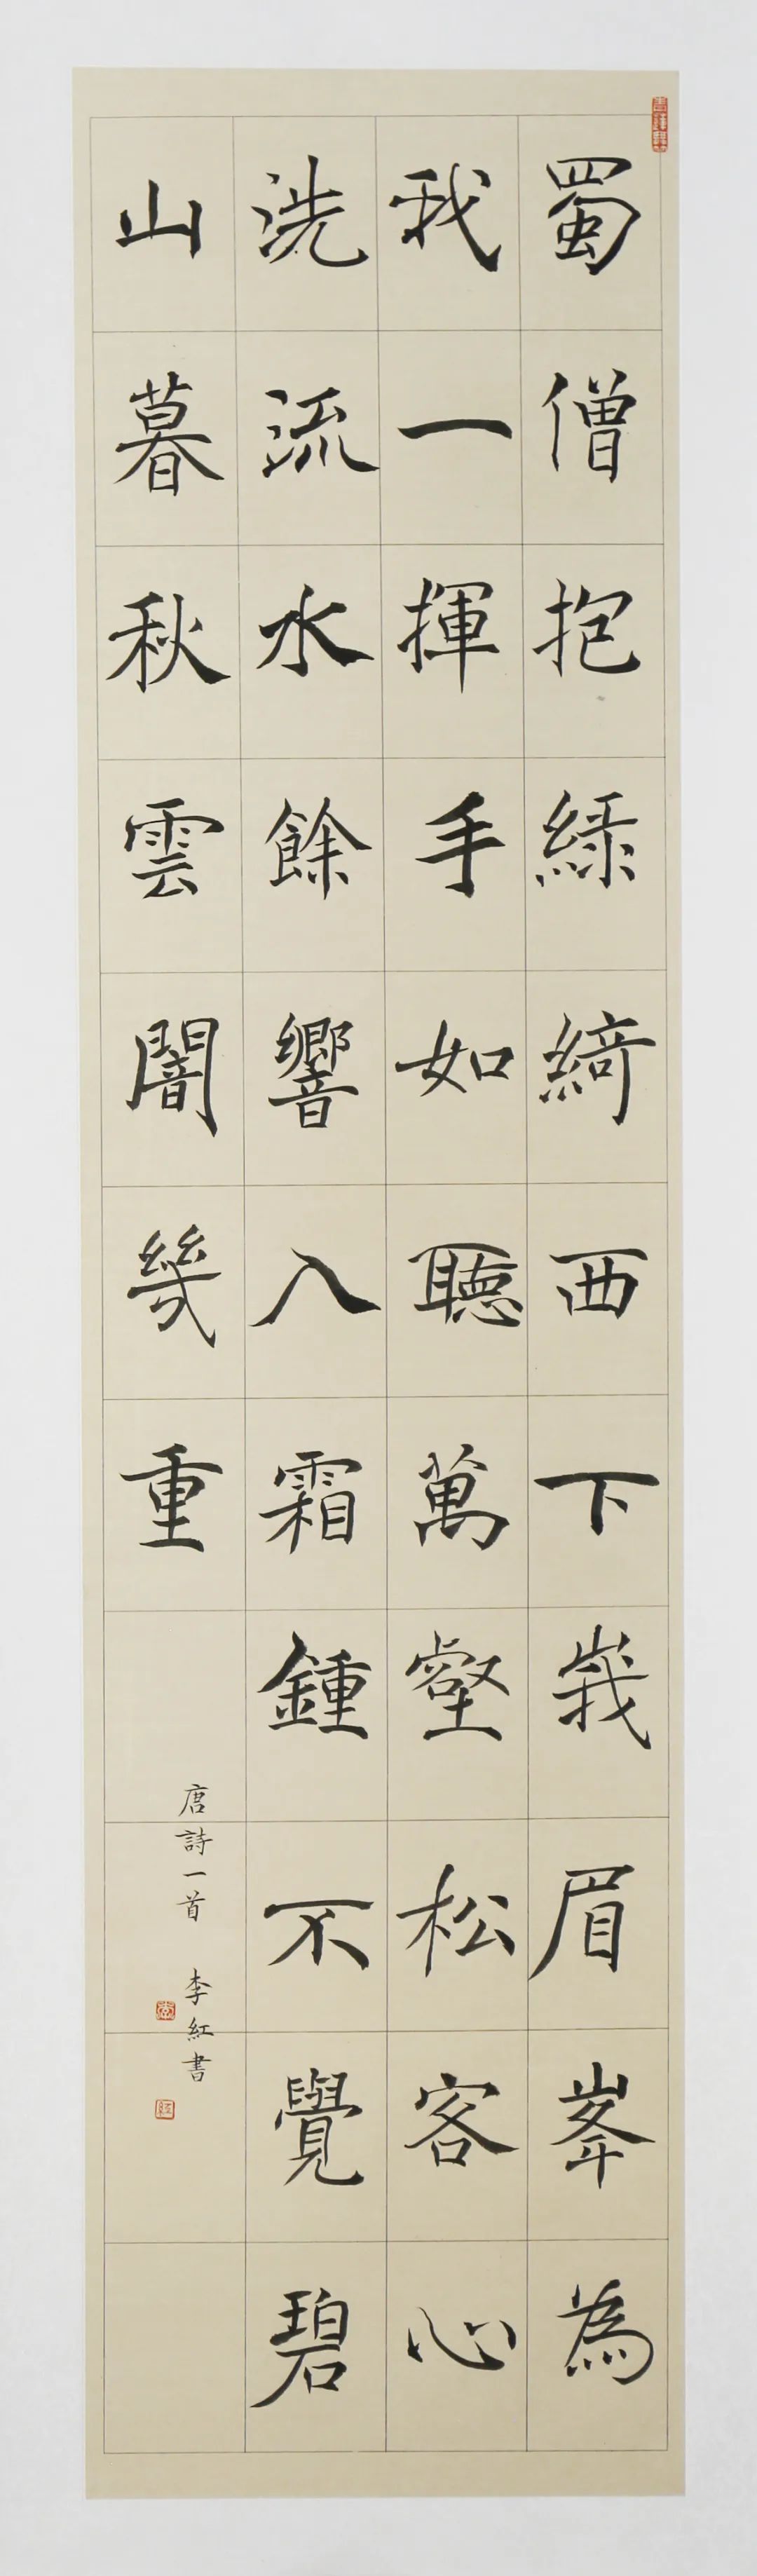 蜀僧抱綠綺西下峩眉峯為
我一揮手如聽萬壑松客心
洗流水餘響入霜鍾不覺碧
山暮秋雲闇幾重
唐詩一首 李紅書